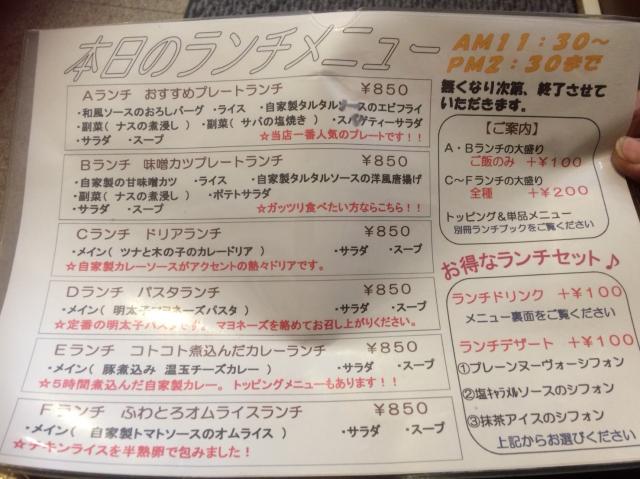 本日のランチメニュー
AM11：30～
PM2：30まで
無くなり次第、終了させて
いただきます。
Aランチ おすすめプレートランチ ¥850
・和風ソースのおろしバーグ ・ライス ・自家製タルタルソースのエビフライ
・副菜（ナスの煮浸し） ・副菜（サバの塩焼き） ・スパゲティーサラダ
・サラダ ・スープ ☆当店一番人気のプレートです！！
Bランチ 味噌カツプレートランチ ¥850
・自家製の甘味噌カツ ・ライス ・自家製タルタルソースの洋風唐揚げ
・副菜（ナスの煮浸し） ・ポテトサラダ
・サラダ ・スープ ☆ガッツリ食べたい方ならこちら！！
Cランチ ドリアランチ ¥850
・メイン（ツナと木の子のカレードリア） ・サラダ ・スープ
☆自家製カレーソースがアクセントの熱々ドリアです。
Dランチ パスタランチ ¥850
・メイン（明太子マヨネーズパスタ） ・サラダ ・スープ
☆定番の明太子パスタです。マヨネーズを絡めてお召し上がりください。
Eランチ コトコト煮込んだカレーランチ ¥850
・メイン（豚煮込み 温玉チーズカレー） ・サラダ ・スープ
☆5時間煮込んだ自家製カレー。トッピングメニューもあります！！
Fランチ ふわとろオムライスランチ ¥850
・メイン（ 自家製トマトソースのオムライス ） ・サラダ ・スープ
☆チキンライスを半熟卵で包みました！
【ご案内】
A・Bランチの大盛り
ご飯のみ ＋¥100
C～Fランチの大盛り
全種 ＋¥200
トッピング＆単品メニュー
別冊ランチブックをご覧ください
お得なランチセット♪
ランチドリンク ＋¥100
メニュー裏面をご覧ください
ランチデザート ＋¥100
①プレーンヌーヴォーシフォン
②塩ｷｬﾗﾒﾙソースのシフォン
③抹茶アイスのシフォン
上記からお選びください